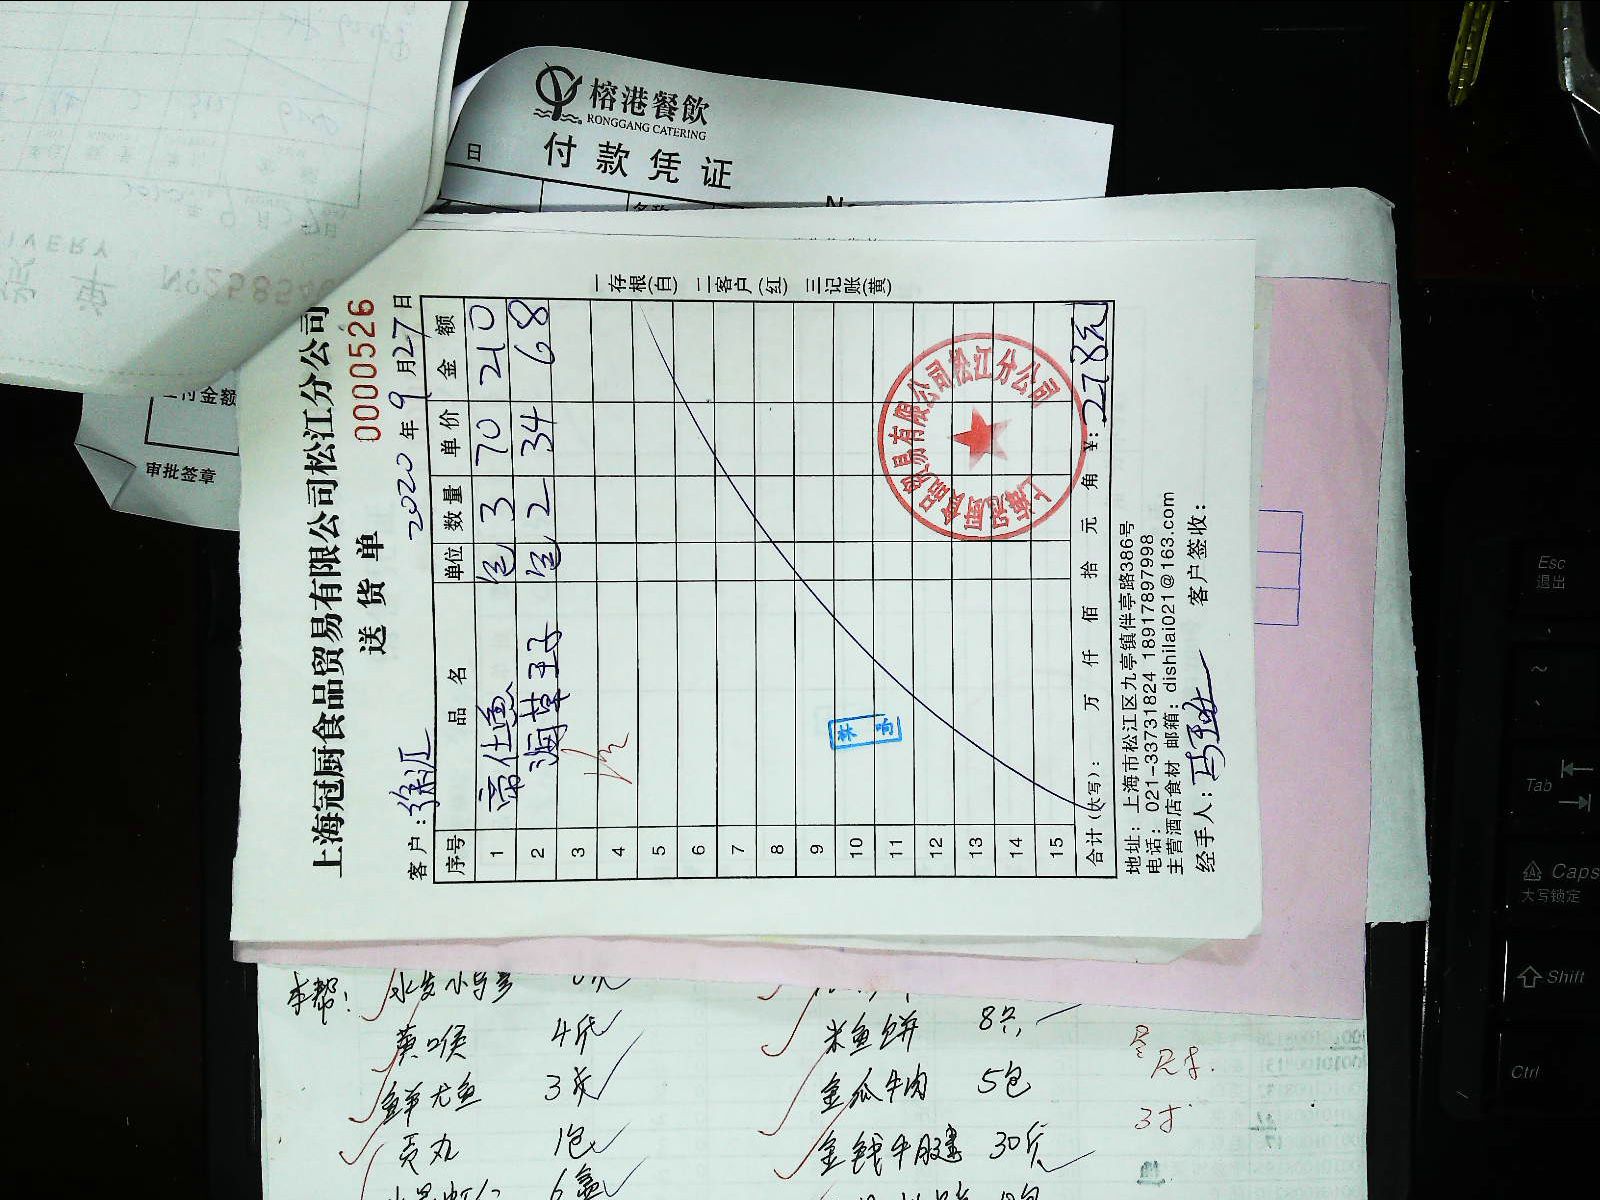 榕港餐飲
RONGGANG CATERING
付款凭证
日
付金额
审批签章
№258540
上海冠厨食品贸易有限公司松江分公司
送货单
0000526
客户:徐汇 2020年9月27日
序号 品名 单位 数量 单价 金额
1 帝仕鱼 包 3 70 210
2 海草王子 包 2 34 68
3
4
5
6
7
8
9
10
11
12
13
14
15
合计(大写): 万 仟 佰 拾 元 角 ¥:278元
地址:上海市松江区九亭镇伴亭路386号
电话:021-33731824 18917897998
主营酒店食材 邮箱:dishilai021@163.com
经手人: 客户签收:
一存根(白) 二客户(红) 三记账(黄)
上海冠厨食品贸易有限公司松江分公司
本帮:
黄喉 4斤
鲜尤鱼 3斤
贡丸 1包
6盒
米鱼饼 8只
金瓜牛肉 5包
金钱牛腱 30斤
Esc
退出
Tab
Caps
大写锁定
Shift
Ctrl